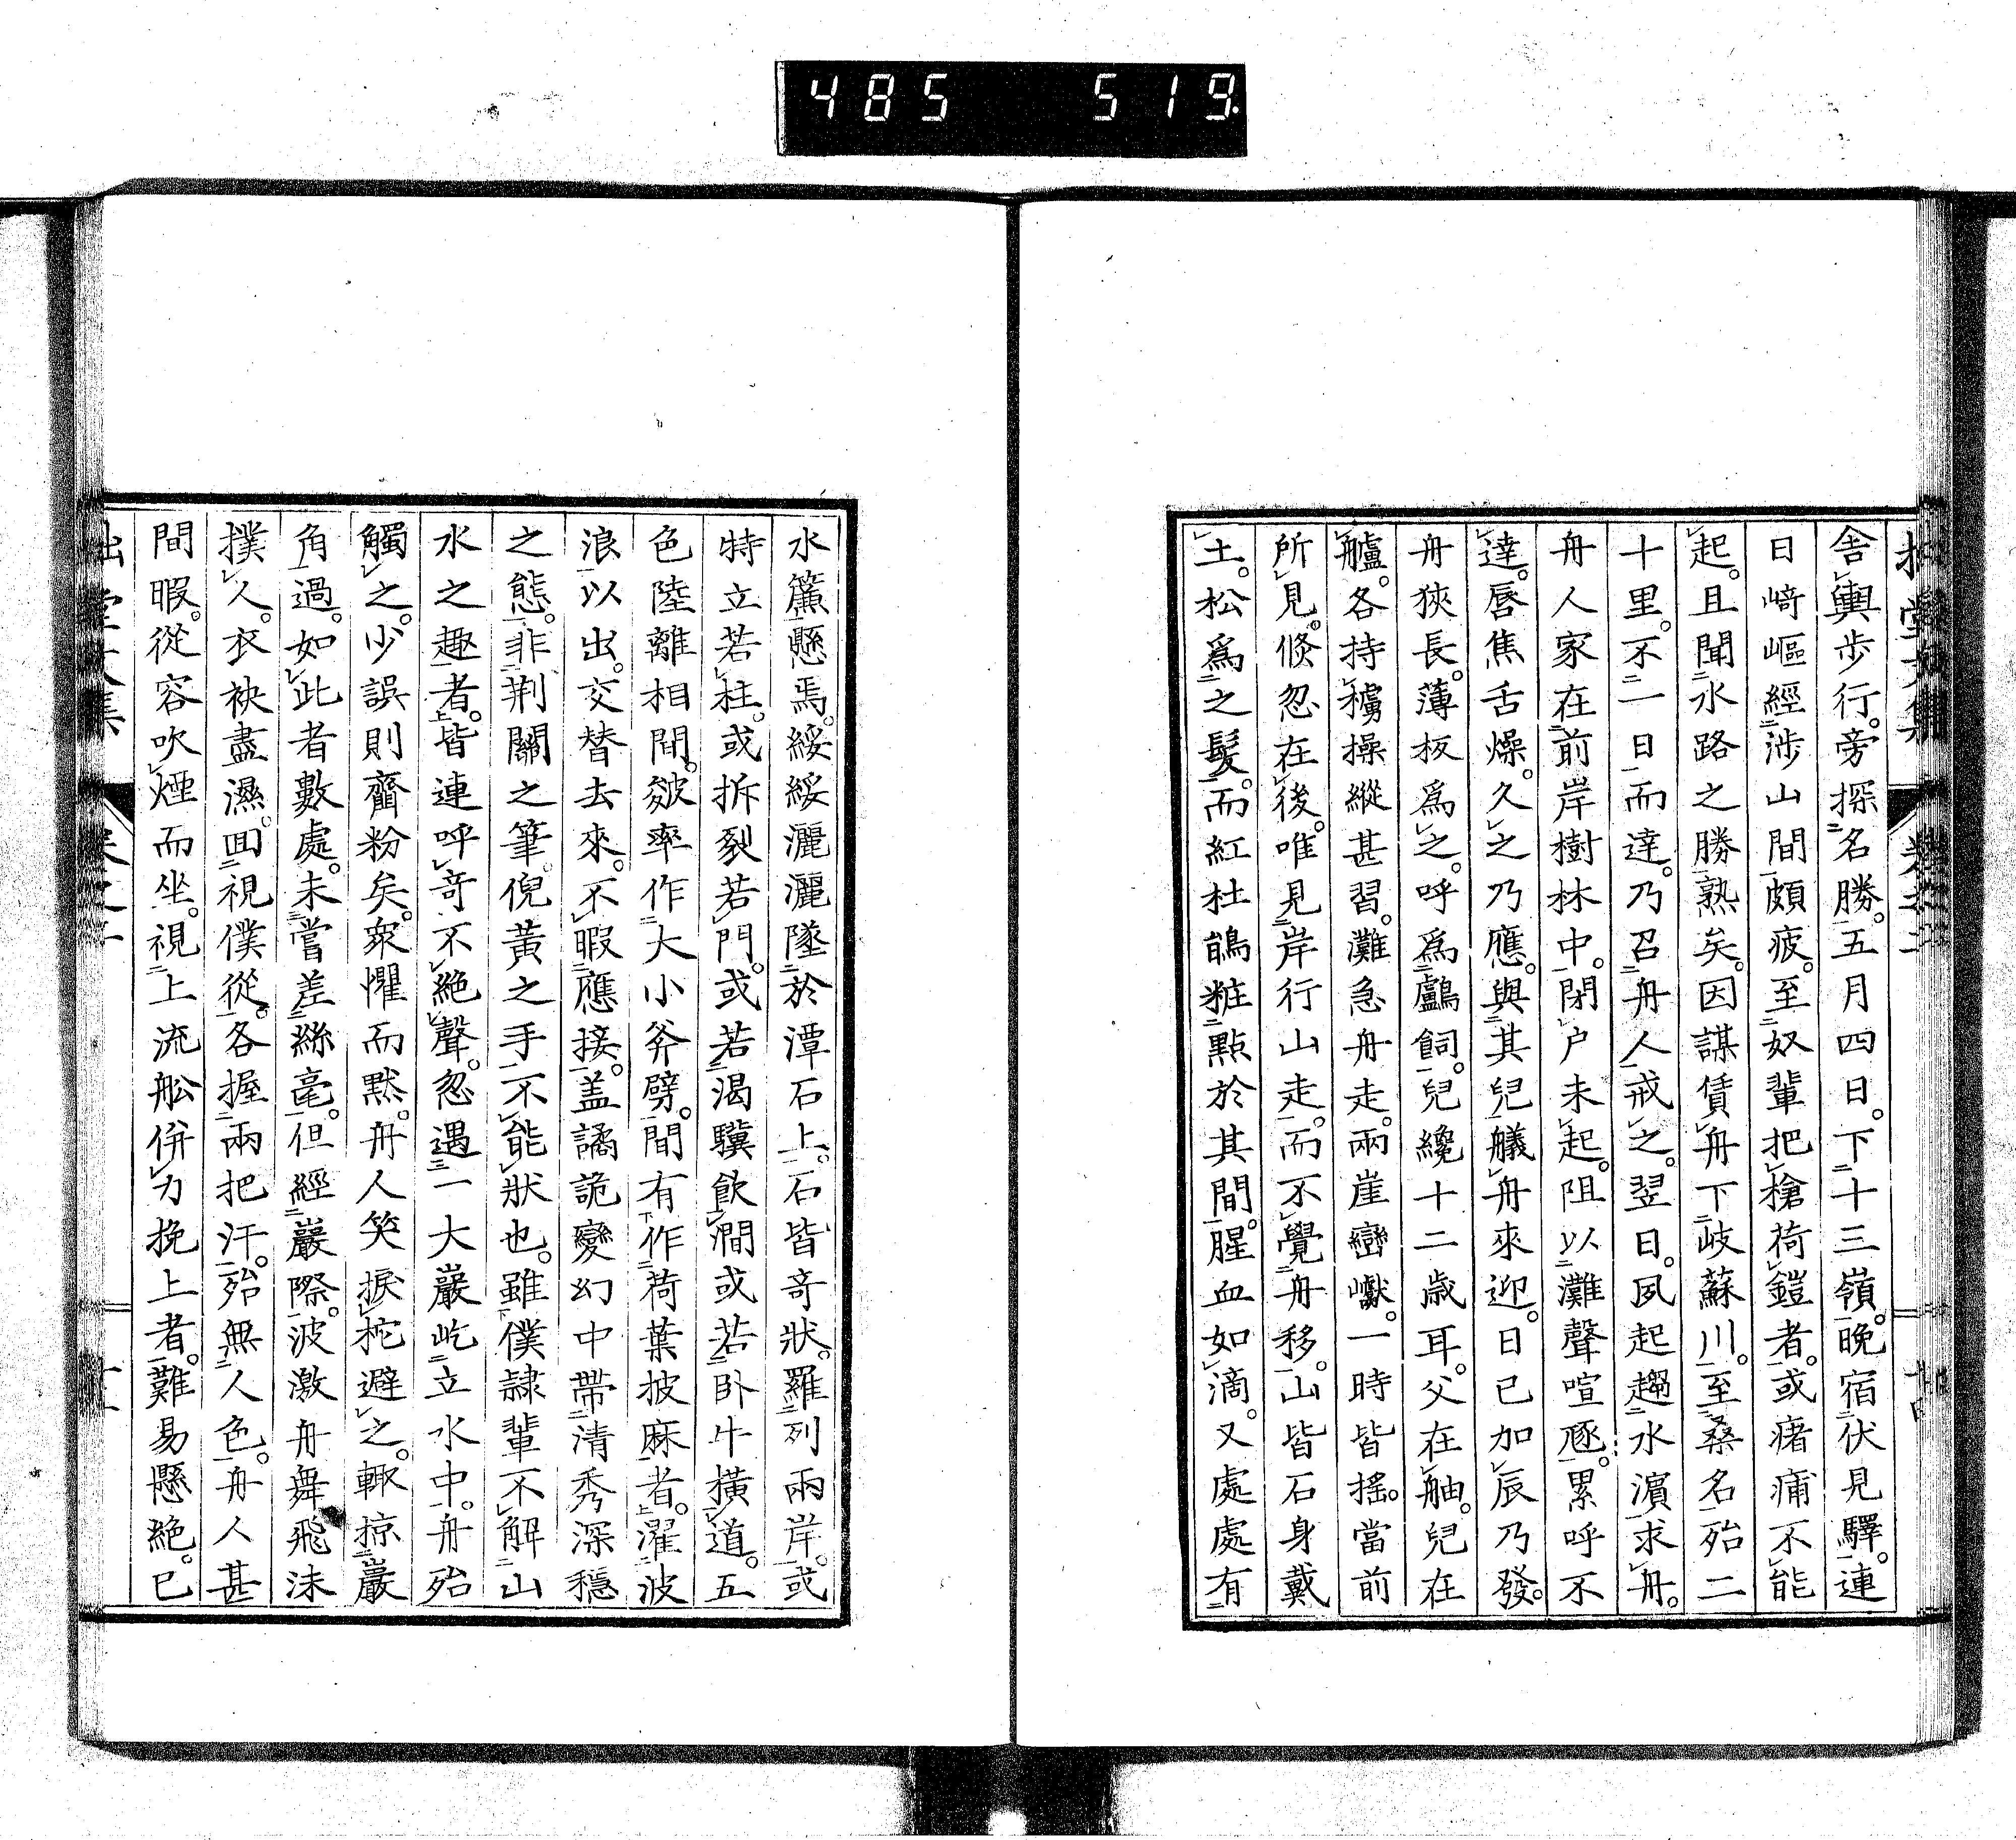 485 519
舎輿步行。旁探名勝。五月四日。下十三嶺。晚宿伏見驛。連
日﨑嶇經涉山間頗疲。至奴輩把槍荷鎧者。或瘏痡不能
起。且聞水路之勝熟矣。因謀賃舟下岐蘇川。至桑名殆二
十里。不一日而達。乃召舟人戒之。翌日。夙起趨水濵求舟。
舟人家在前岸樹林中。閉户未起。阻以灘聲喧豗。累呼不
達。唇焦舌燥。久之乃應。與其兒艤舟來迎。日已加辰乃發。
舟狹長。薄板爲之。呼爲鸕飼。兒纔十二歲耳。父在舳。兒在
艫。各持櫓操縱甚習。灘急舟走。兩崖巒巘。一時皆搖。當前
所見。倏忽在後。唯見岸行山走。而不覺舟移。山皆石身戴
土。松爲之髮。而紅杜鵑粧點於其間。腥血如滴。又處處有
水簾懸焉。綏綏灑灑墜於潭石上。石皆奇狀。羅列兩岸。或
特立若柱。或拆裂若門。或若渴驥飲澗或若卧牛橫道。五
色陸離相間。皴率作大小斧劈。間有作荷葉披麻者。濯波
浪以出。交替去來。不暇應接。盖譎詭變幻中帶清秀深穩
之態。非荆關之筆倪黃之手。不能狀也。雖僕隷輩不解山
水之趣者。皆連呼奇不絕聲。忽遇一大巖屹立水中。舟殆
觸之。少誤則齏粉矣。衆懼而默。舟人笑捩柁避之。輙掠巖
角過。如此者數處。未嘗差絲毫。但經巖際。波激舟舞飛沫
撲人。衣袂盡濕。回視僕從。各握兩把汗。殆無人色。舟人甚
間暇。從容吹煙而坐。視上流舩併力挽上者。難易懸絕。已